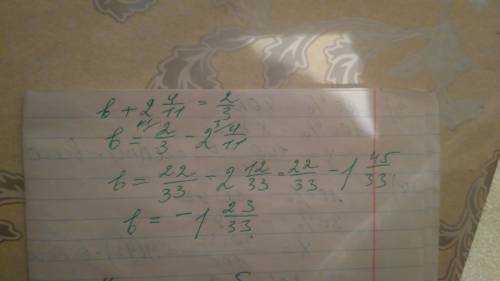 b + 2 4/11 = 2/3
b = 11/ 2/3 - 2 3/ 4/11
b = 22/33 - 2 12/33 = 22/33 - 1 45/33
b = - 1 23/33